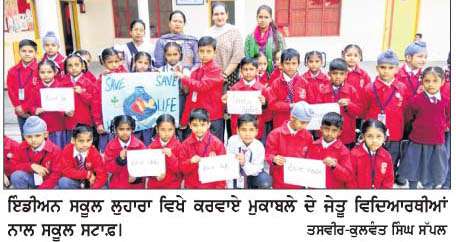 SAVE SAVE
LIFE
ਇੰਡੀਅਨ ਸਕੂਲ ਲੁਹਾਰਾ ਵਿਖੇ ਕਰਵਾਏ ਮੁਕਾਬਲੇ ਦੇ ਜੇਤੂ ਵਿਦਿਆਰਥੀਆਂ
ਨਾਲ ਸਕੂਲ ਸਟਾਫ਼। ਤਸਵੀਰ-ਕੁਲਵੰਤ ਸਿੰਘ ਸੱਪਲ